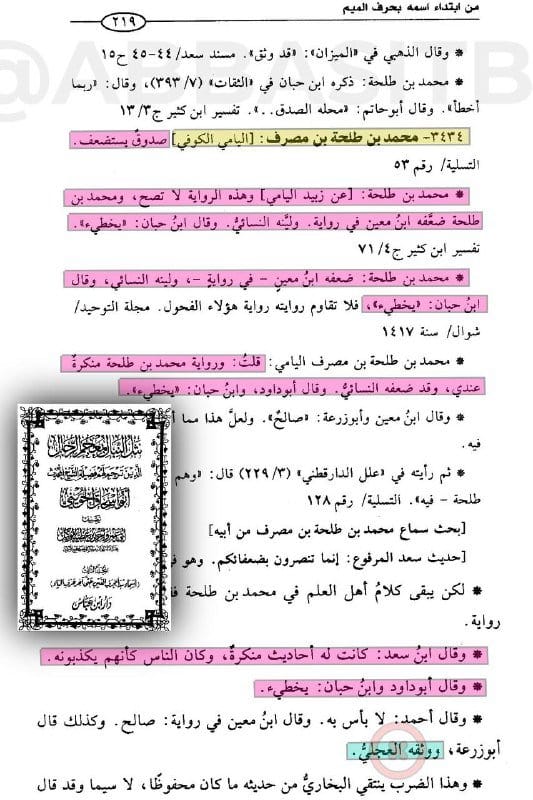 من ابتداء اسمه بحرف الميم
٢١٩
* وقال الذهبي في «الميزان»: «قد وثق». مسند سعد/ ٤٤-٤٥ ح١٥
* محمد بن طلحة: ذكره ابن حبان في «الثقات» (٣٩٣/٧)، وقال: «ربما
أخطأ». وقال أبوحاتم: «محله الصدق..». تفسير ابن كثير ج١٣/٣
٣٤٣٤- محمد بن طلحة بن مصرف: [اليامي الكوفي] صدوقٌ يستضعف.
التسلية/ رقم ٥٣
* محمد بن طلحة: [عن زبيد اليامي] وهذه الرواية لا تصح، ومحمد بن
طلحة ضعَّفه ابنُ معين في رواية. وليَّنه النسائيُّ. وقال ابنُ حبان: «يخطيء».
تفسير ابن كثير ج٧١/٤
* محمد بن طلحة: ضعفه ابنُ معينٍ - في روايةٍ -، ولينه النسائي، وقال
ابنُ حبان: «يخطيء»، فلا تقاوم روايته رواية هؤلاء الفحول. مجلة التوحيد/
شوال/ سنة ١٤١٧
* محمد بن طلحة بن مصرف اليامي: قلتُ: ورواية محمد بن طلحة منكرةٌ
عندي، وقد ضعفه النسائيُّ. وقال أبوداود، وابنُ حبان: «يخطيء».
* وقال ابنُ معين وأبوزرعة: «صالحٌ». ولعلَّ هذا مما
فيه.
* ثم رأيته في «علل الدارقطني» (٢٢٩/٣) قال: «وهم
طلحة - فيه». التسلية/ رقم ١٢٨
[بحث سماع محمد بن طلحة بن مصرف من أبيه]
[حديث سعد المرفوع: إنما تنصرون بضعفائكم. وهو
* لكن يبقى كلامُ أهل العلم في محمد بن طلحة
رواية.
* وقال ابنُ سعد: كانت له أحاديث منكرةٌ، وكان الناس كأنهم يكذبونه.
* وقال أبوداود وابنُ حبان: يخطيء.
* وقال أحمد: لا بأس به. وقال ابنُ معين في رواية: صالح. وكذلك قال
أبوزرعة، ووثقه العجليُّ.
* وهذا الضرب ينتقي البخاريُّ من حديثه ما كان محفوظًا، لا سيما وقد قال